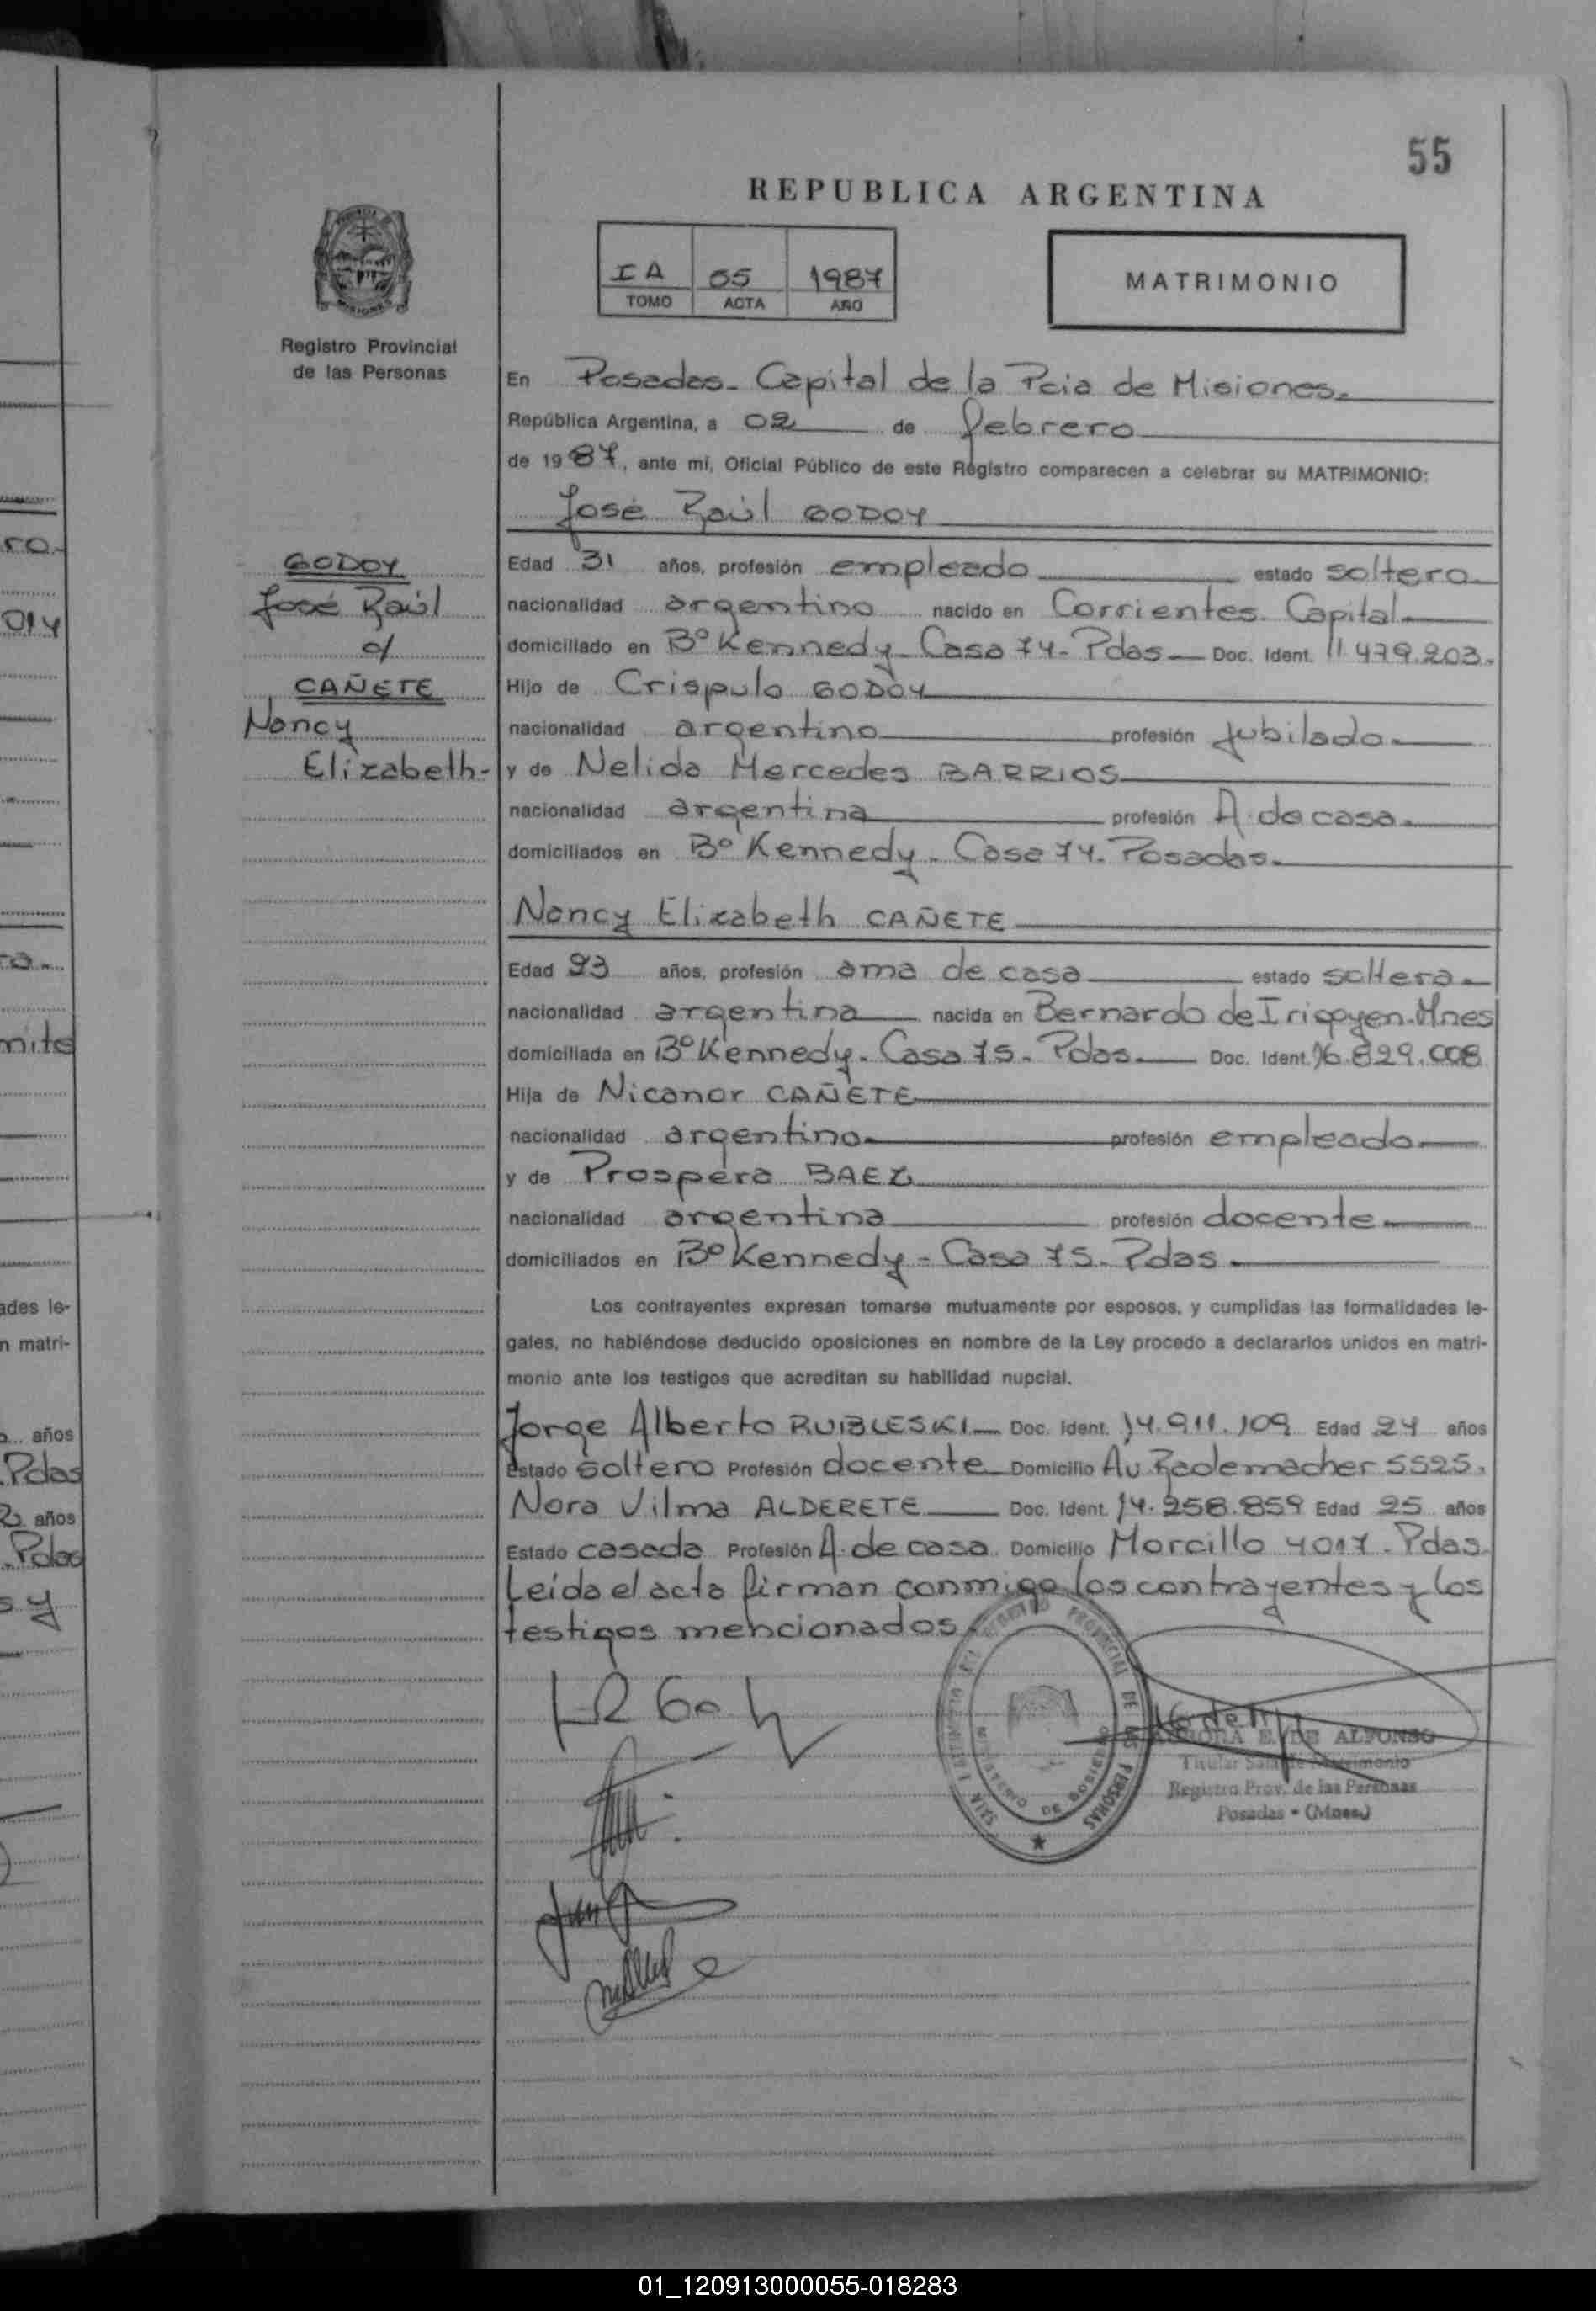 55
REPUBLICA ARGENTINA
IA 55 1987
TOMO ACTA AÑO
MATRIMONIO
Registro Provincial
de las Personas
En Posadas - Capital de la Pcia de Misiones.
República Argentina, a 02 de febrero
de 1987, ante mí, Oficial Público de este Registro comparecen a celebrar su MATRIMONIO:
José Raúl GODOY
GODOY
José Raúl
c/
CAÑETE
Nancy
Elizabeth-
Edad 31 años, profesión empleado estado soltero
nacionalidad argentino nacido en Corrientes. Capital
domiciliado en Bº Kennedy - Casa 74 - Pdas Doc. Ident. 11.479.203.
Hijo de Crispulo GODOY
nacionalidad argentino profesión jubilado.
y de Nelida Mercedes BARRIOS
nacionalidad argentina profesión A. de casa.
domiciliados en Bº Kennedy - Casa 74. Posadas.
Nancy Elizabeth CAÑETE
Edad 23 años, profesión ama de casa estado soltera
nacionalidad argentina nacida en Bernardo de Irigoyen. Mnes
domiciliada en Bº Kennedy. Casa 75. Pdas. Doc. Ident. 16.829.008
Hija de Nicanor CAÑETE
nacionalidad argentino profesión empleado
y de Prospera BAEZ
nacionalidad argentina profesión docente
domiciliados en Bº Kennedy - Casa 75. Pdas.
Los contrayentes expresan tomarse mutuamente por esposos, y cumplidas las formalidades le-
gales, no habiéndose deducido oposiciones en nombre de la Ley procedo a declararlos unidos en matri-
monio ante los testigos que acreditan su habilidad nupcial.
Jorge Alberto RUIBLESKI Doc. Ident. 14.911.109 Edad 24 años
Estado soltero Profesión docente Domicilio Av. Rademacher 5525.
Nora Vilma ALDERETE Doc. Ident. 14.258.859 Edad 25 años
Estado casada Profesión A. de casa. Domicilio Morcillo 4017 - Pdas.
Leida el acta firman conmigo los contrayentes y los
testigos mencionados.
PROVINCIAL DE LAS PERSONAS
MINISTERIO DE GOBIERNO
E. DE ALFONSO
Titular Sala de Matrimonio
Registro Prov. de las Personas
Posadas - (Mnes.)
ro.
ades le-
n matri-
años
Pdas
años
Pdas
s y
01_120913000055-018283